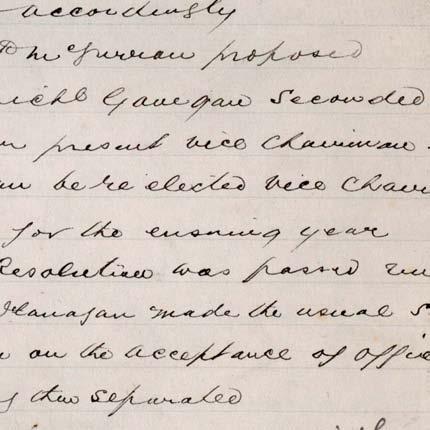 accordingly
McGurran proposed
Gavegan seconded
present vice chairman
be re elected vice Chair
for the ensuing year
Resolution was passed
Flanagan made the usual
on the acceptance of offic
then separated